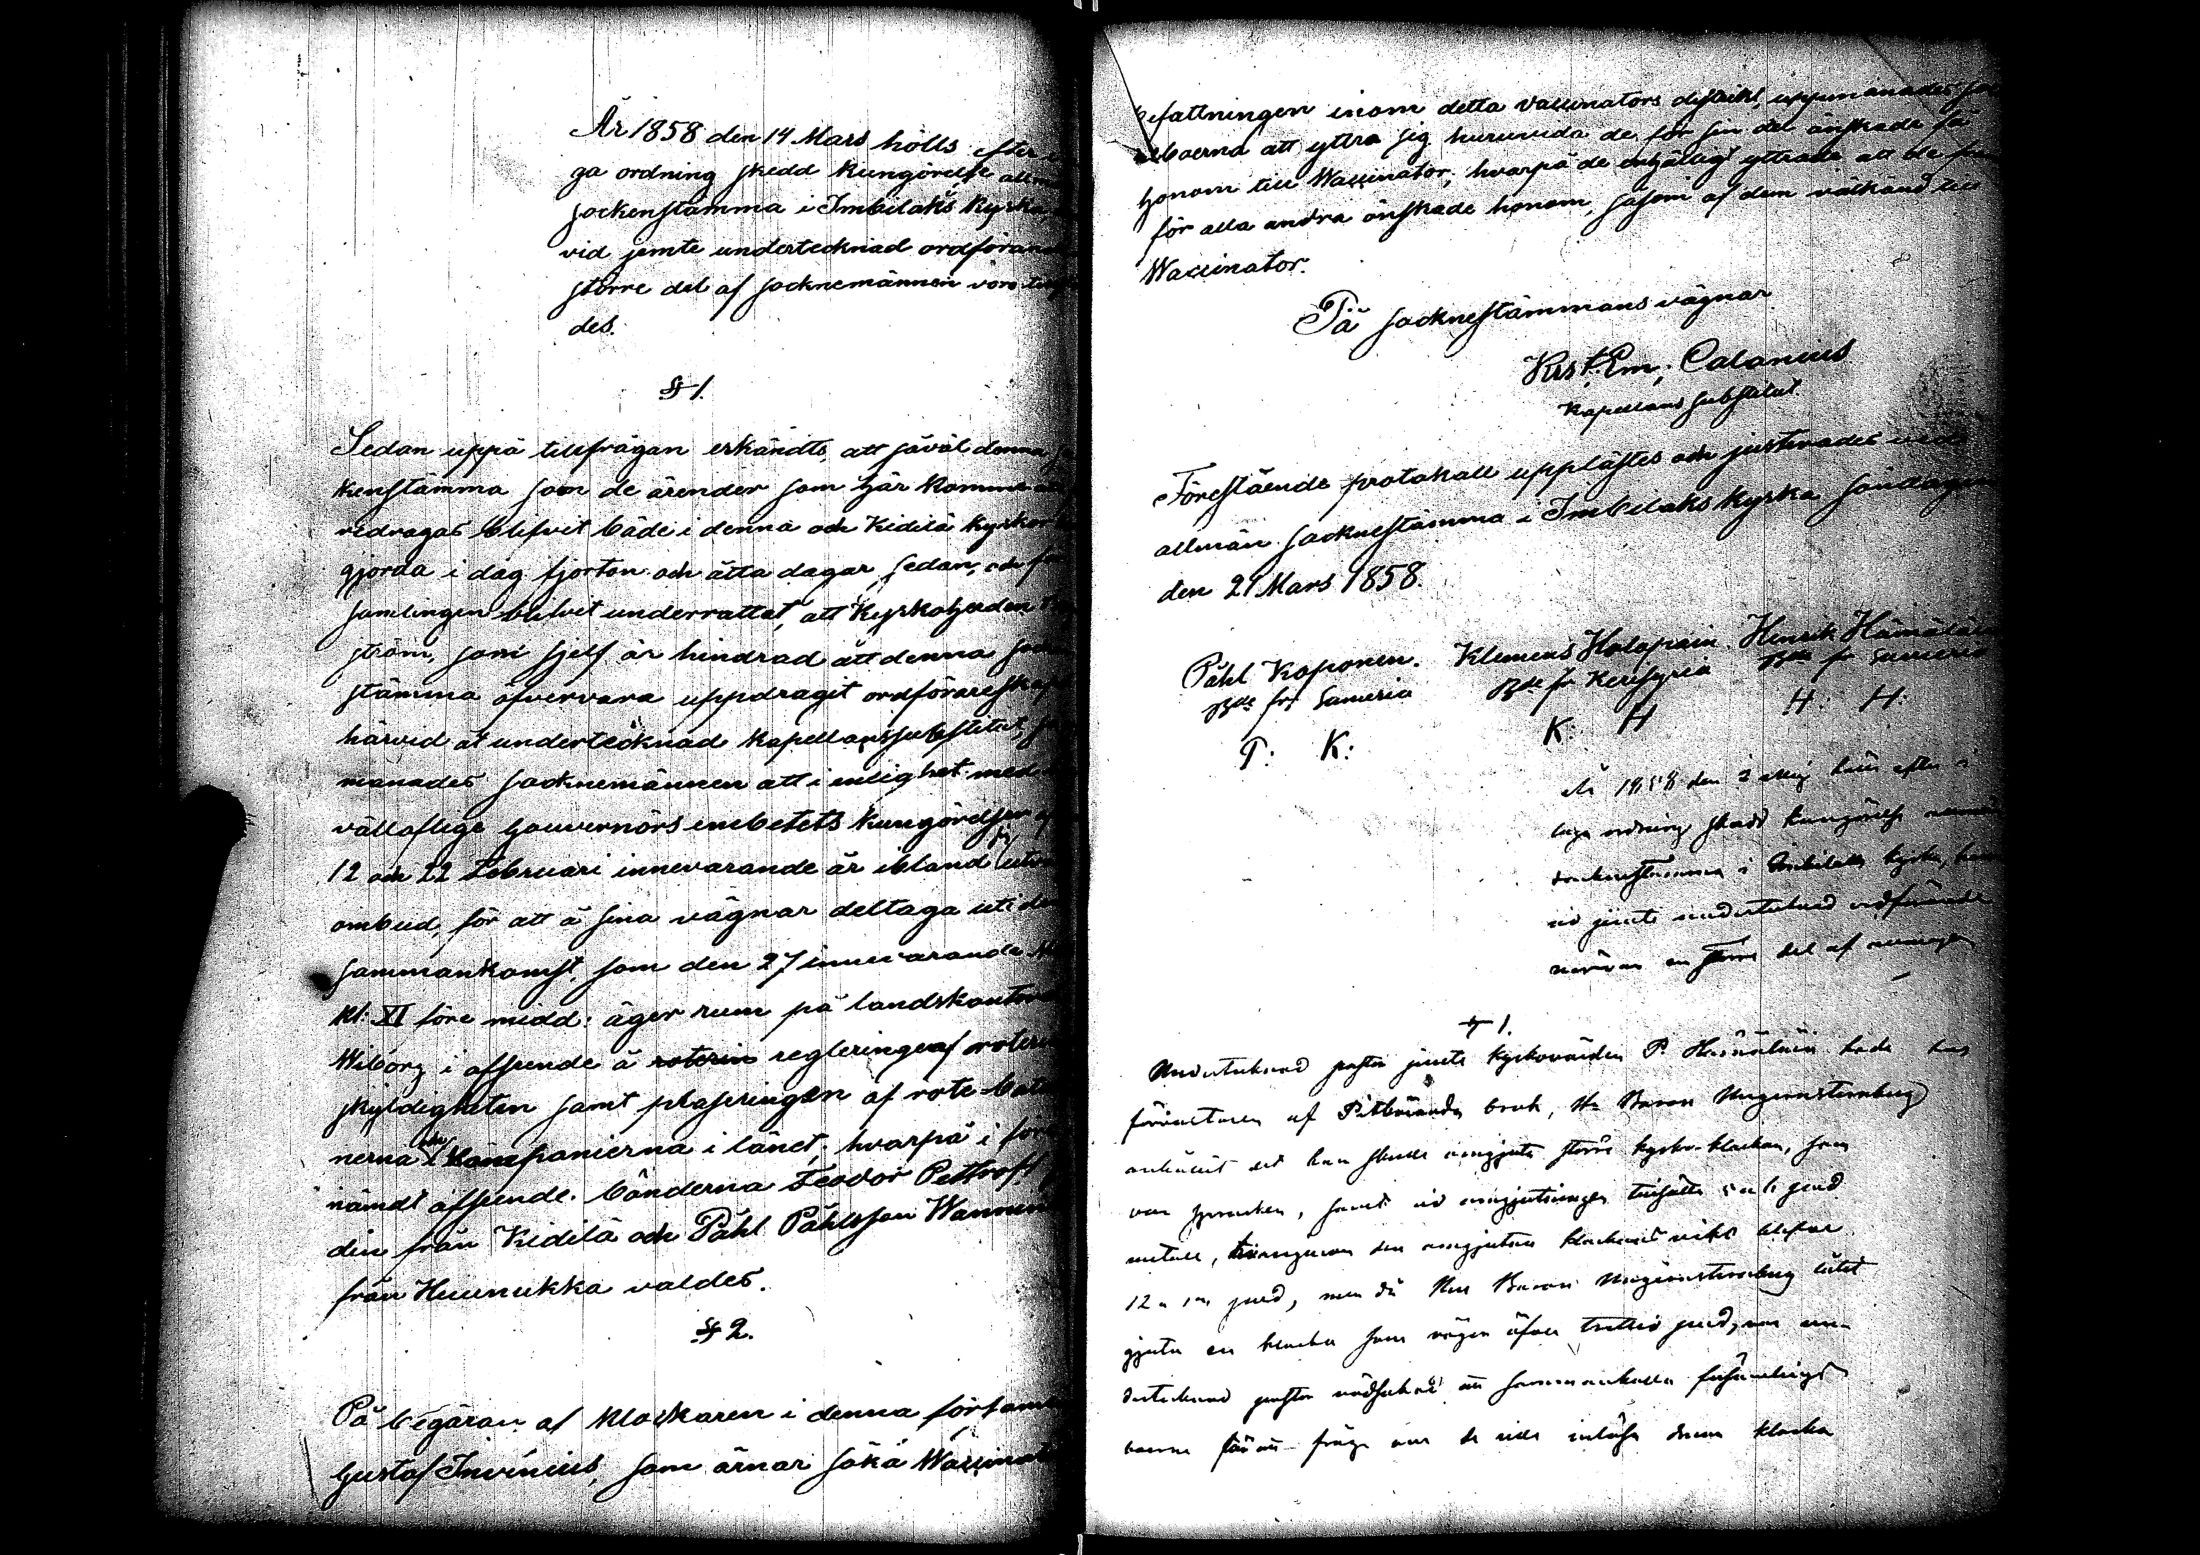 År 1858 den 14 Mars hölls efter
ga ordning skedd Kungörelse allm
sockenstämma i Imbilaks Kyrka
vid jemte undertecknad ordföran
större del af socknemännen voro
des.
§ 1.
Sedan uppå tillfrågan erkändts, att såväl denna
kenstämma som de ärender som här komma att
redragas blifvit både i denna och Kidilä kyrkor
gjorda i dag fjorton och åtta dagar sedan, och
samlingen blifvit underrättat, att Kyrkoherden
ström, som sjelf är hindrad att denna
stämma öfvervara uppdragit ordförareskap
härvid åt undertecknad Kapellanssubstitut,
manades socknemännen att i enlighet med
vällofliga Gouvernörs embetets Kungörelser af
12 och 22 Februari innevarande år ibland sig
ombud, för att å sina vägnar deltaga uti
sammankomst, som den 27 innevarande
kl: XI före midd: äger rum på landskontoret
Wiborg i afseende å roterin regleringen af rotering
skyldigheten samt placeringen af rote-bata
nerna och kompanierna i länet, hvarpå i
nämdt afseende bönderna Feodor Pettroff
din från Kidilä och Påhl Påhlsson Wannin
från Huunukka valdes.
§ 2.
På begäran af klockaren i denna försam
Gustaf Invenius, som ärnar söka Waccinat
befattningen inom detta vaccinators distrikt, uppmanades
boerna att yttra sig huruvida de för sin del önskade få
honom till Waccinator, hvarpå de enhälligt yttrade att de
för alla andra önskade honom, såsom af dem välkänd till
Waccinator.
På socknestämmans vägnar
Krist: Em: Calonius
Kapellans substitut.
Förestående protokoll upplästes och justerades vid
allmän socknestämma i Imbilaks Kyrka söndagen
den 21 Mars 1858.
Påhl Koponen. Klemens Holopain. Henrik Hämäläin
Bde fr Sumeria Bde fr Kerisyria Bde fr Sumeria
P: K: K: H H: H:
År 1858 den 2 Maj hölls efter
laga ordning skedd kungörelse
socknestämma i Imbilaks kyrka,
vid jemte undertecknad ordförande
en större del af
§ 1.
Undertecknad pastor jemte kyrkovärden P. Hämäläin hade hos
förvaltaren af Pitkäranda bruk, Hr Baron Ungernsternberg
att han skulle omgjuta större kyrko-klockan, som
var sprucken, samt vid omgjutningen tillsätta pud
metall, hvarigenom den omgjutna klockans vikt blefve
12 pud, men då Herr Baron Ungernsternberg låtit
gjuta en klocka som väger öfver trettio pud, var un-
dertecknad pastor nödsakad att sammankalla församlings
boerna för att fråga om de vilja inlösa denna klocka